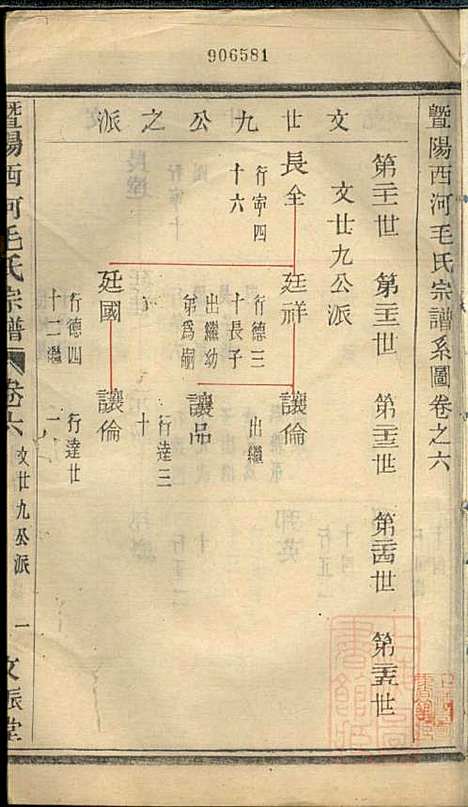 906581
暨陽西河毛氏宗譜系圖卷之六
文廿九公之派
第二十一世 第二十二世 第二十三世 第二十四世 第二十五世
文廿九公派
長全
行寧四
十六
廷祥
行德三
十長子
出繼幼
弟為嗣
讓倫
出繼
讓品
行達三
十
廷國
行德四
十二繼
讓倫
行達廿
一
暨陽西河毛氏宗譜
卷六
文廿九公派
一
文振堂